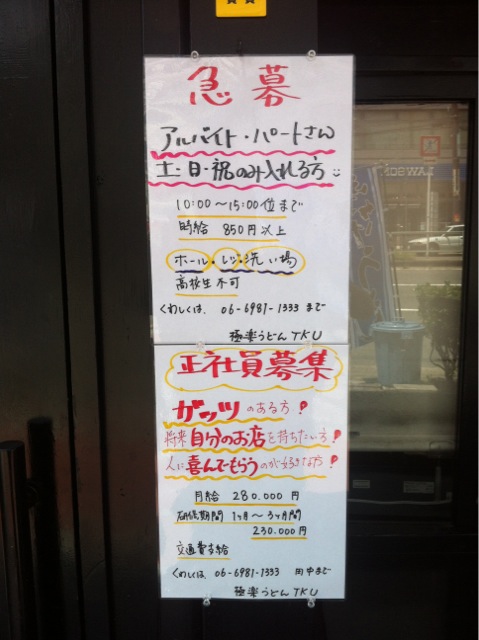 急募
アルバイト・パートさん
土・日・祝のみ入れる方
10:00〜15:00位まで
時給 850円以上
ホール・レジ・洗い場
高校生不可
くわしくは、06-6981-1333まで
極楽うどんTKU
正社員募集
ガッツのある方!
将来自分のお店を持ちたい方!
人に喜んでもらうのが好きな方!
月給 280.000円
研修期間 1ヶ月〜3ヶ月間
230.000円
交通費支給
くわしくは、06-6981-1333 田中まで
極楽うどんTKU
LAWSON